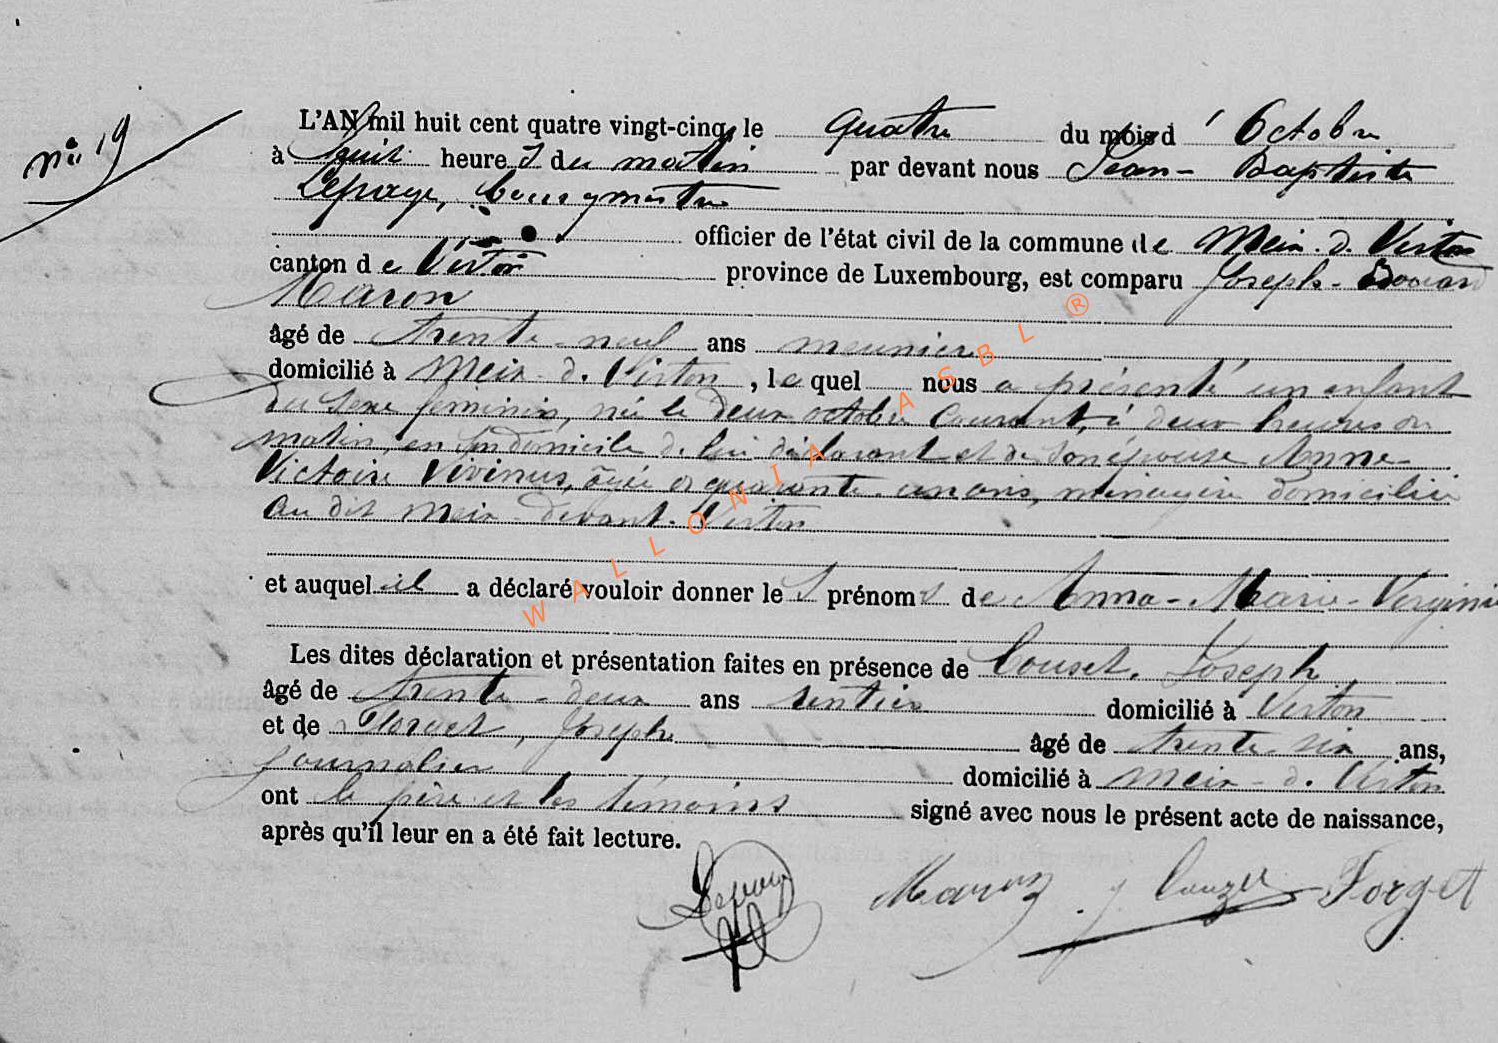 n° 19
L'AN mil huit cent quatre vingt-cinq, le quatre du mois d' Octobre
à huit heures du matin par devant nous Jean-Baptiste
Lepage, bourgmestre
officier de l'état civil de la commune de Meix-d. Virton
canton de Virton province de Luxembourg, est comparu Joseph-
Maron
âgé de trente-neuf ans meunier
domicilié à Meix-d. Virton, le quel nous a présenté un enfant
du sexe feminin, née le deux octobre courant, à deux heures du
matin, en son domicile de lui déclarant et de son épouse Anne
Victoire Vivinus, âgée de quarante-un ans, ménagère domiciliée
au dit Meix-devant-Virton
et auquel il a déclaré vouloir donner les prénoms de Anna-Marie-Virginie
Les dites déclaration et présentation faites en présence de Joseph
âgé de trente-deux ans rentier domicilié à Virton
et de Forget, Joseph âgé de trente-six ans,
journalier domicilié à Meix-d. Virton
ont le père et les témoins signé avec nous le présent acte de naissance,
après qu'il leur en a été fait lecture.
Lepage Maron J Forget
WALLONIA ASBL ®